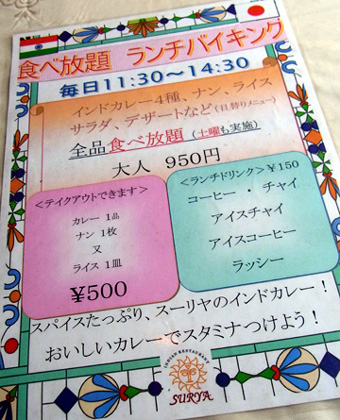 食べ放題　ランチバイキング
毎日11:30～14:30
インドカレー4種、ナン、ライス
サラダ、デザートなど(日替りメニュー)
全品食べ放題（土曜も実施）
大人　950円
＜テイクアウトできます＞
カレー 1品
ナン 1枚
又
ライス 1皿
￥500
＜ランチドリンク＞￥150
コーヒー ・ チャイ
アイスチャイ
アイスコーヒー
ラッシー
スパイスたっぷり、スーリヤのインドカレー！
おいしいカレーでスタミナつけよう！
INDIAN RESTAURANT
SURYA